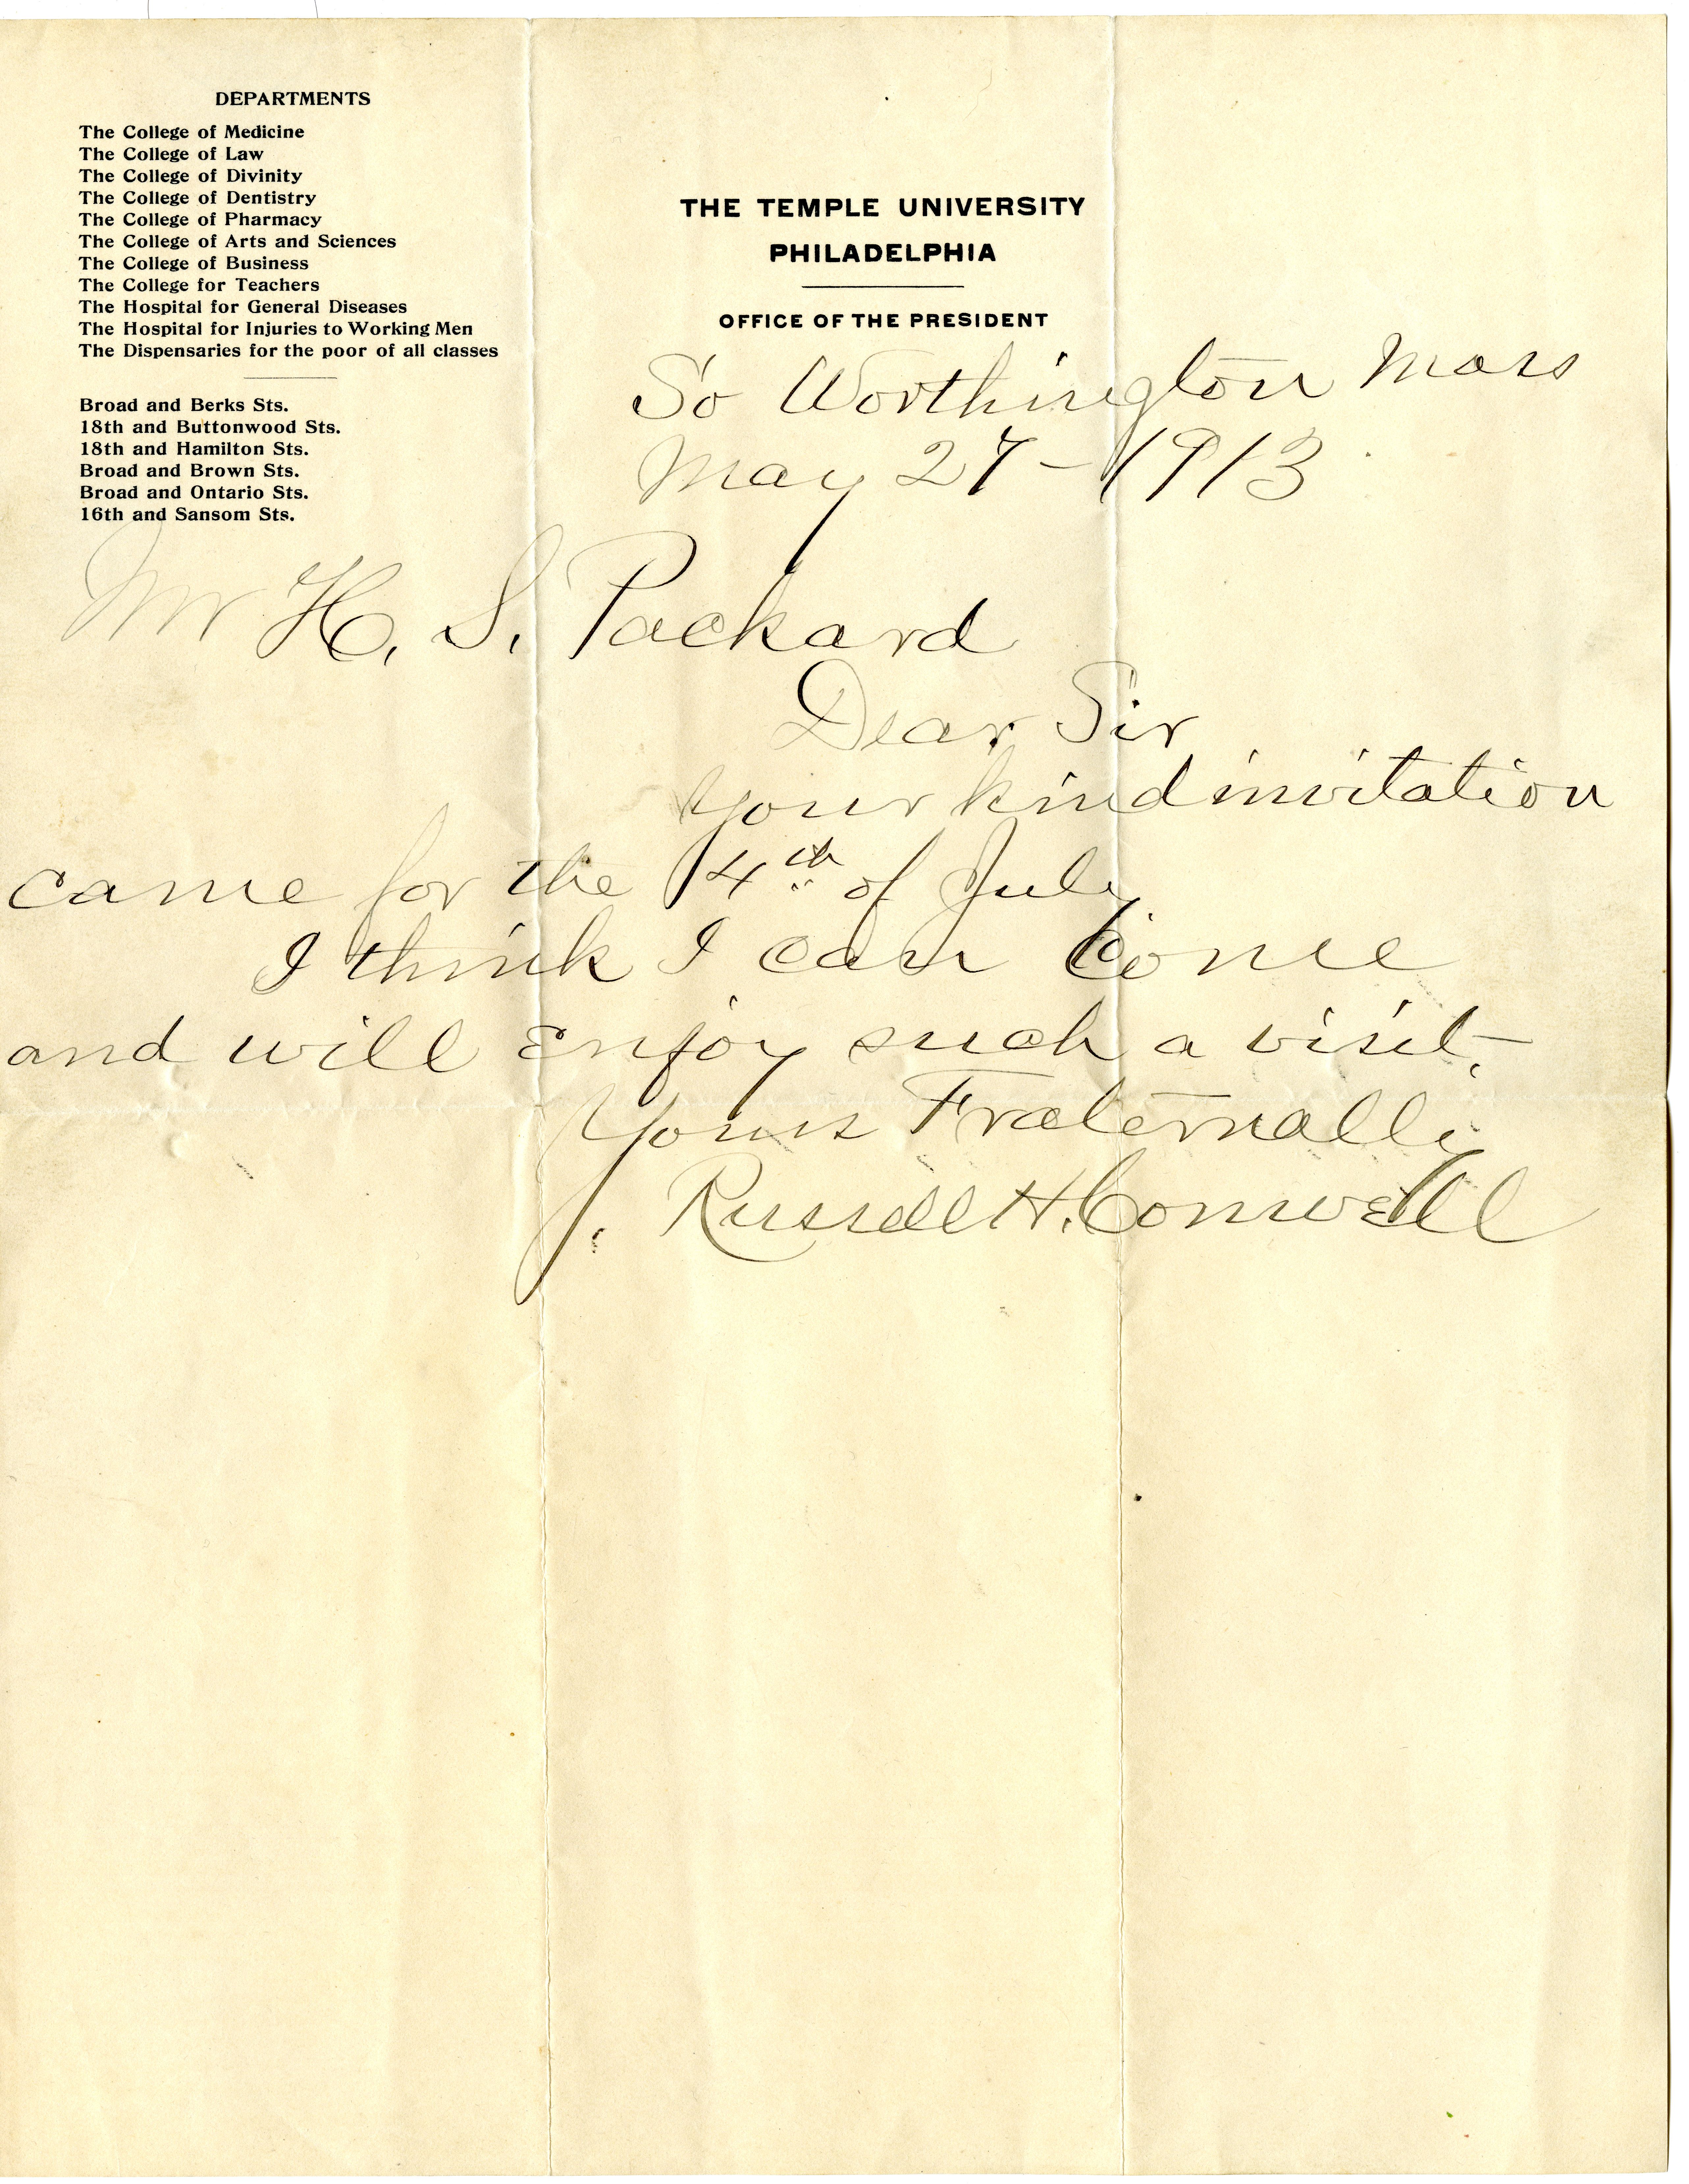 DEPARTMENTS
The College of Medicine
The College of Law
The College of Divinity
The College of Dentistry
The College of Pharmacy
The College of Arts and Sciences
The College of Business
The College for Teachers
The Hospital for General Diseases
The Hospital for Injuries to Working Men
The Dispensaries for the poor of all classes
Broad and Berks Sts.
18th and Buttonwood Sts.
18th and Hamilton Sts.
Broad and Brown Sts.
Broad and Ontario Sts.
16th and Sansom Sts.
THE TEMPLE UNIVERSITY
PHILADELPHIA
OFFICE OF THE PRESIDENT
So Worthington Mass
May 27 - 1913
Mr H. S. Packard
Dear Sir
Your kind invitation
came for the 4th of July
I think I can come
and will enjoy such a visit.
Yours Fraternally
Russell H. Conwell